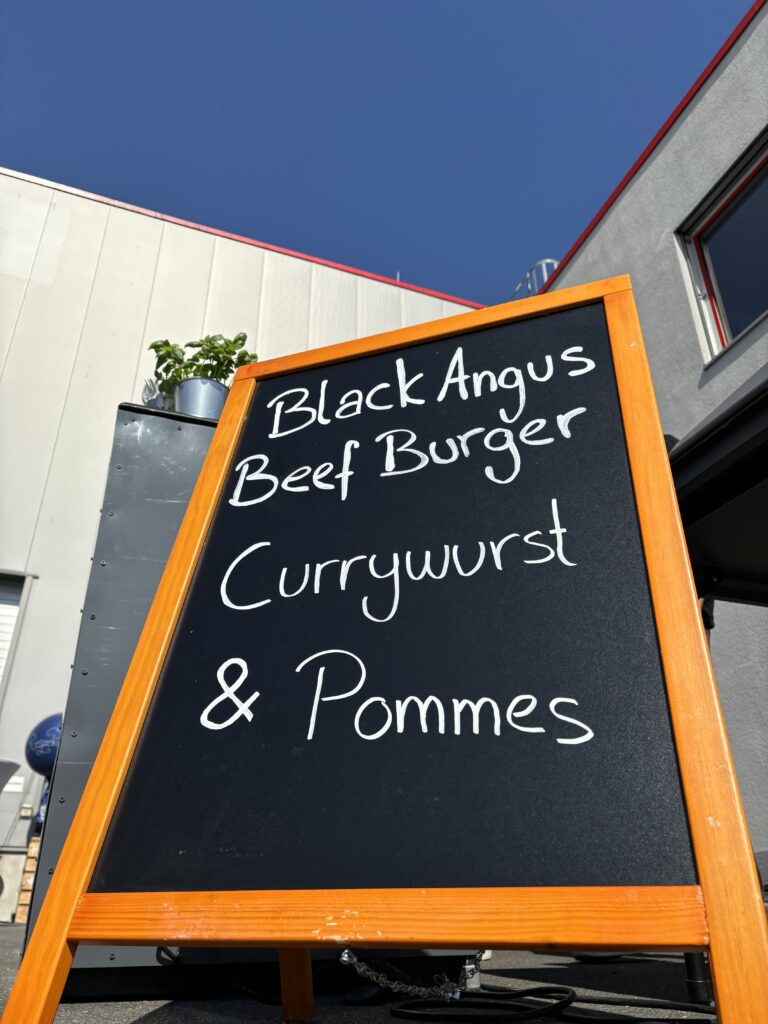 Black Angus
Beef Burger
Currywurst
& Pommes